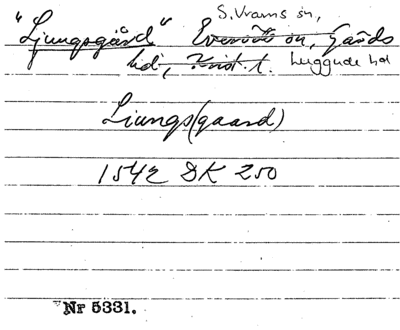 S. Vrams sn,
"Ljungsgård" Everöds sn, Gärds
hd, Krist. l. Luggude hd
Liungs(gaard)
1542 DK 250
Nr 5331.